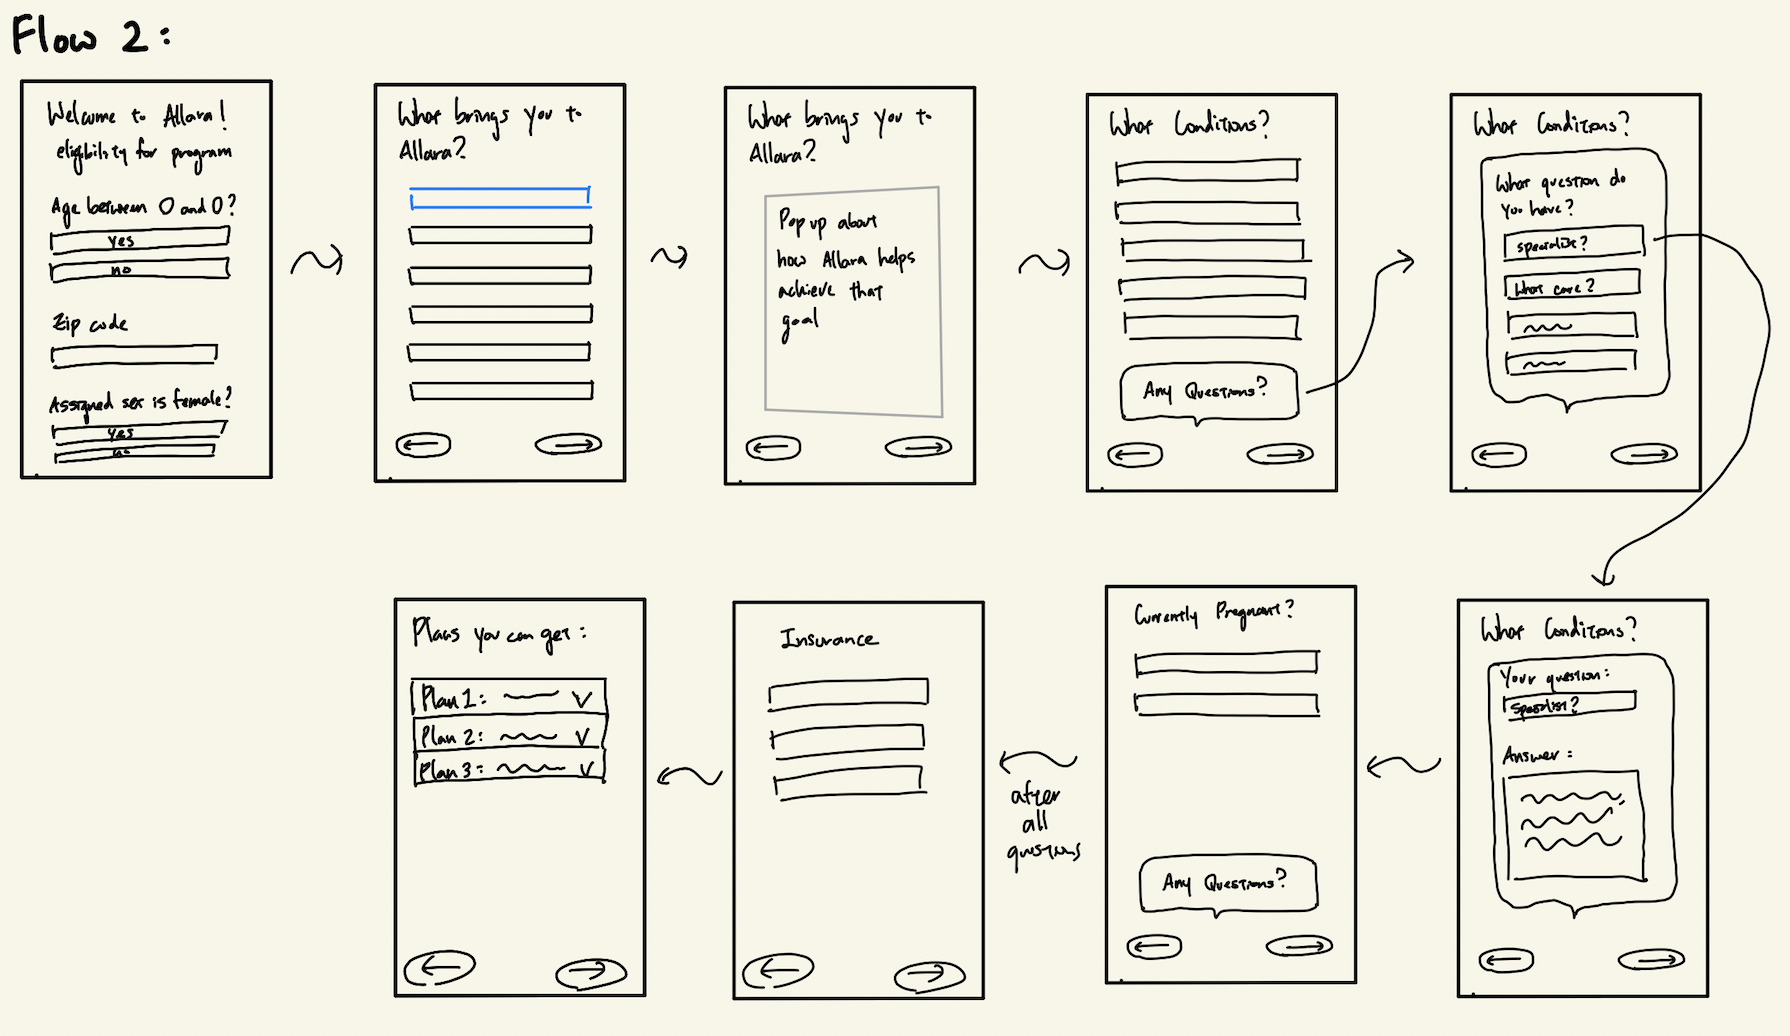 Flow 2:
Welcome to Allara!
eligibility for program
Age between 0 and 0?
yes
no
Zip code
Assigned sex is female?
yes
no
What brings you to
Allara?
What brings you to
Allara?
Pop up about
how Allara helps
achieve that
goal
What Conditions?
Any Questions?
What Conditions?
What question do
you have?
specialist?
What care?
What Conditions?
Your question:
Specialist?
Answer:
Currently Pregnant?
Any Questions?
after
all
questions
Insurance
Plans you can get:
Plan 1:
Plan 2:
Plan 3: